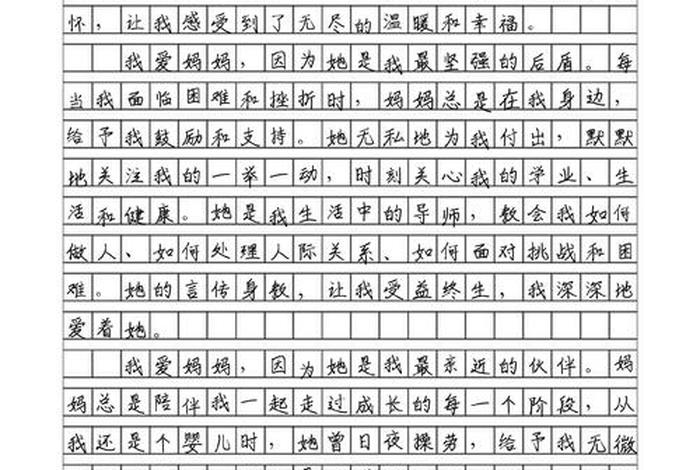 怀，让我感受到了无尽的温暖和幸福。
我爱妈妈，因为她是我最坚强的后盾。每
当我面临困难和挫折时，妈妈总是在我身边，
给予我鼓励和支持。她无私地为我付出，默默
地关注我的一举一动，时刻关心我的学业、生
活和健康。她是我生活中的导师，教会我如何
做人、如何处理人际关系、如何面对挑战和困
难。她的言传身教，让我受益终生，我深深地
爱着她。
我爱妈妈，因为她是我最亲近的伙伴。妈
妈总是陪伴我一起走过成长的每一个阶段，从
我还是个婴儿时，她曾日夜操劳，给予我无微